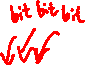 bit bit bit